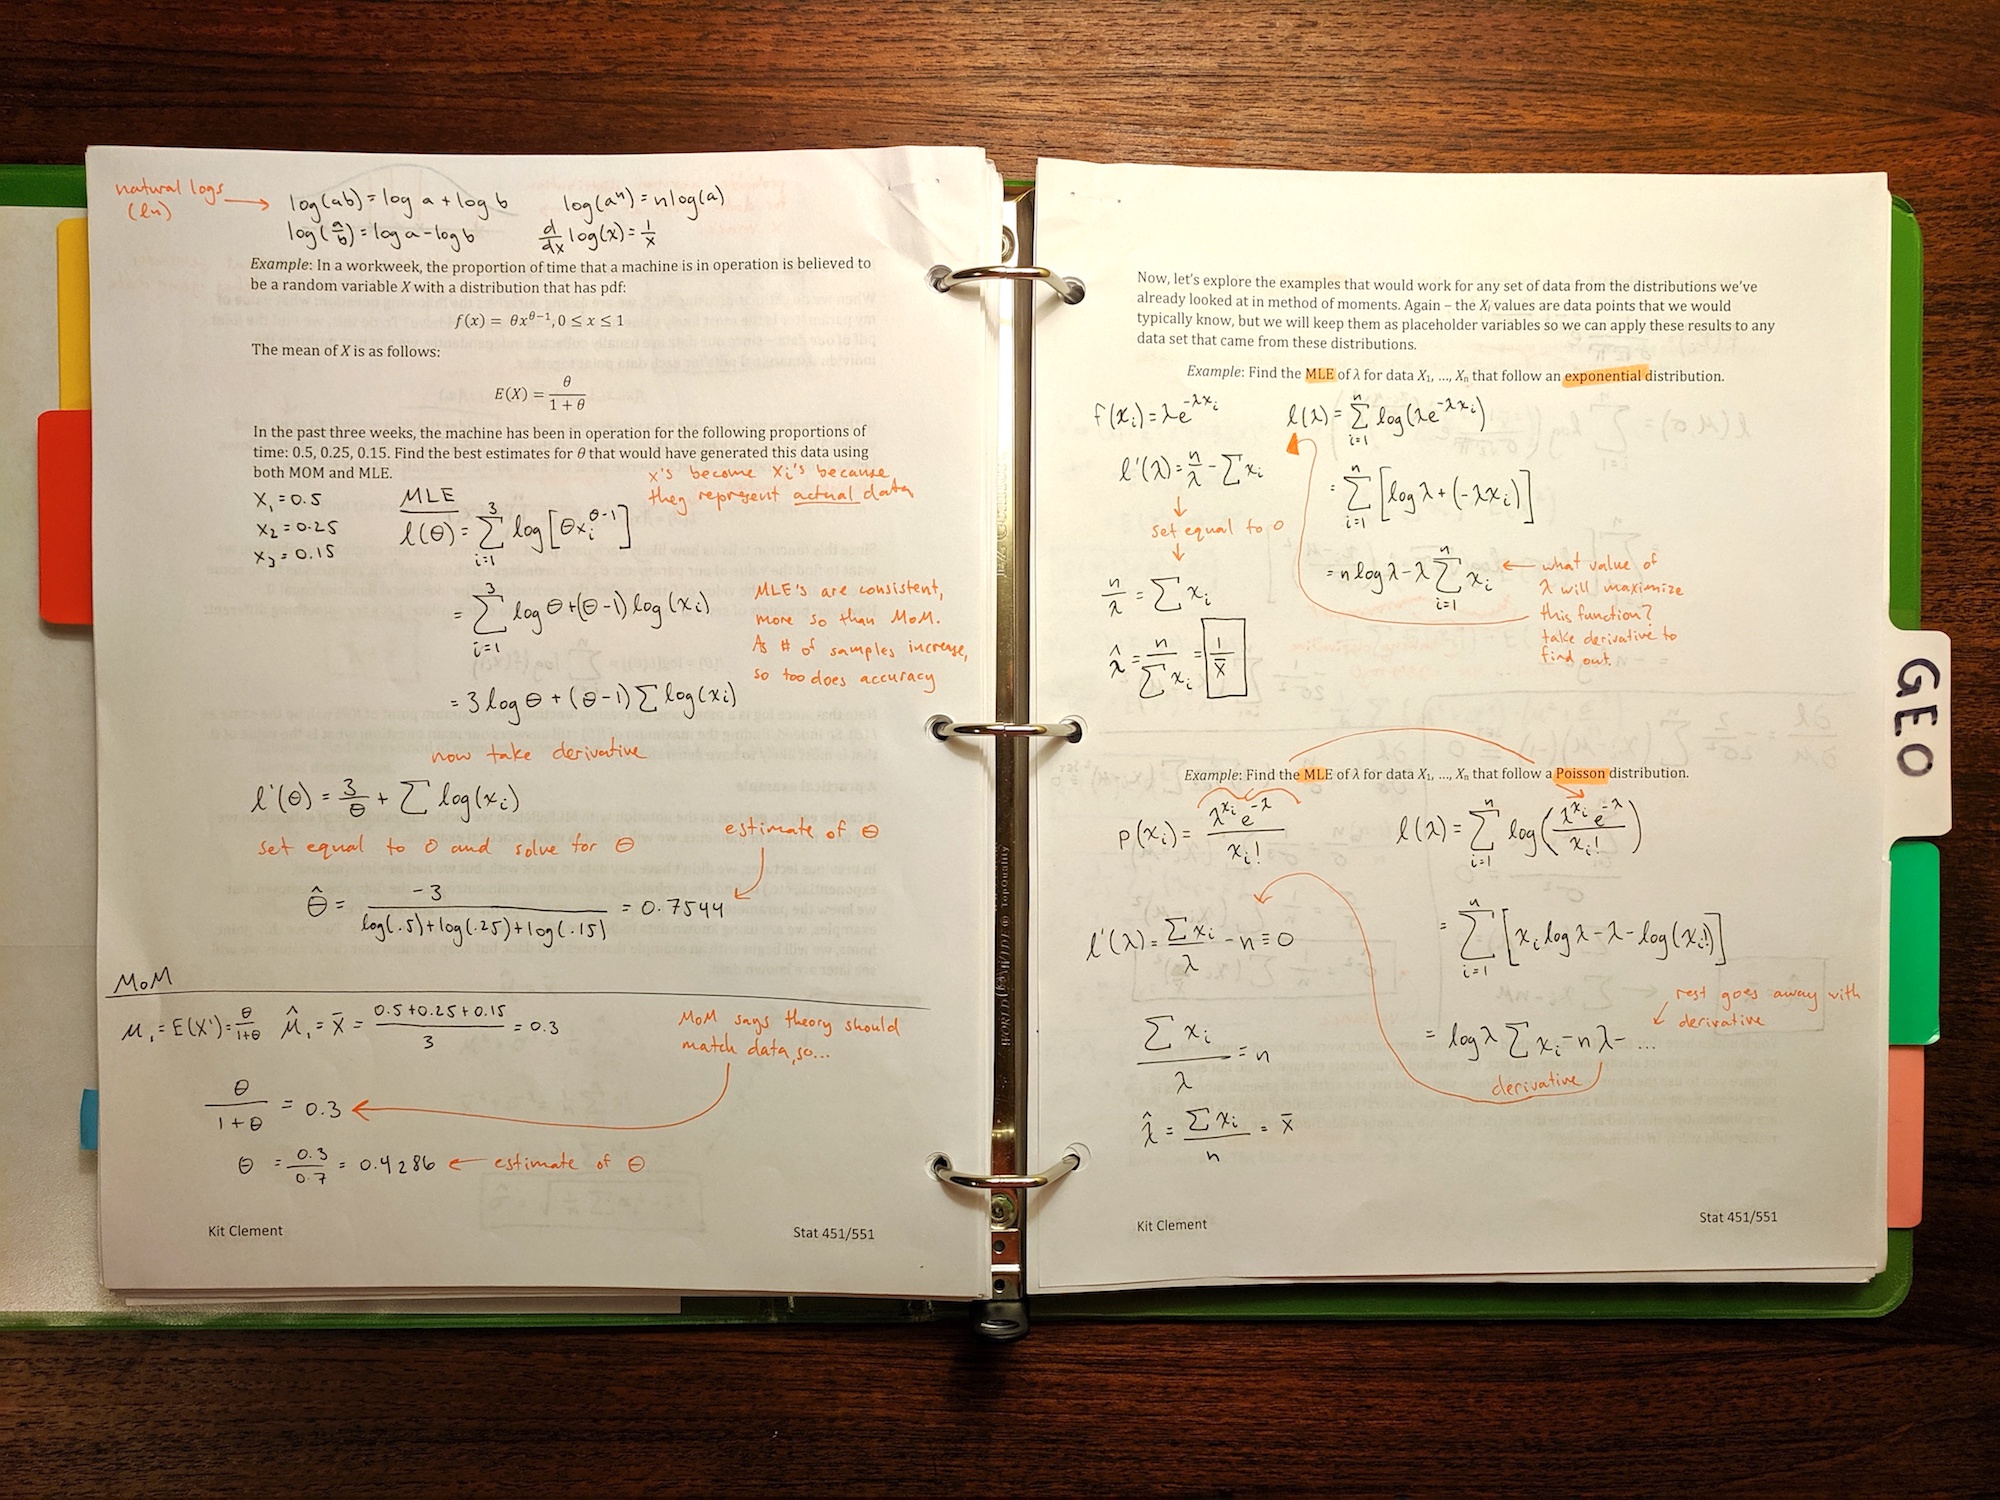 natural logs
(ln)
log(ab) = log a + log b log(aⁿ) = n log(a)
log(a/b) = log a - log b d/dx log(x) = 1/x
Example: In a workweek, the proportion of time that a machine is in operation is believed to
be a random variable X with a distribution that has pdf:
f(x) = θx^(θ−1), 0 ≤ x ≤ 1
The mean of X is as follows:
E(X) = θ/(1 + θ)
In the past three weeks, the machine has been in operation for the following proportions of
time: 0.5, 0.25, 0.15. Find the best estimates for θ that would have generated this data using
both MOM and MLE.
x's become xᵢ's because
they represent actual data
x₁ = 0.5
x₂ = 0.25
x₃ = 0.15
MLE
l(θ) = Σ_{i=1}^{3} log[θxᵢ^(θ-1)]
= Σ_{i=1}^{3} log θ + (θ-1) log(xᵢ)
MLE's are consistent,
more so than MoM.
As # of samples increase,
so too does accuracy
= 3 log θ + (θ-1) Σ log(xᵢ)
now take derivative
l'(θ) = 3/θ + Σ log(xᵢ)
set equal to 0 and solve for θ
estimate of θ
θ̂ = -3/(log(.5)+log(.25)+log(.15)) = 0.7544
MoM
μ₁ = E(X¹) = θ/(1+θ) μ̂₁ = x̄ = (0.5+0.25+0.15)/3 = 0.3
MoM says theory should
match data, so...
θ/(1+θ) = 0.3
θ = 0.3/0.7 = 0.4286 ← estimate of θ
Kit Clement Stat 451/551
Now, let's explore the examples that would work for any set of data from the distributions we've
already looked at in method of moments. Again – the Xᵢ values are data points that we would
typically know, but we will keep them as placeholder variables so we can apply these results to any
data set that came from these distributions.
Example: Find the MLE of λ for data X₁, ..., Xₙ that follow an exponential distribution.
f(xᵢ) = λe^(-λxᵢ)
l'(λ) = n/λ - Σxᵢ
set equal to 0
n/λ = Σ xᵢ
λ̂ = n/Σxᵢ = 1/x̄
l(λ) = Σ_{i=1}^{n} log(λe^(-λxᵢ))
= Σ_{i=1}^{n} [log λ + (-λxᵢ)]
= n log λ - λ Σ_{i=1}^{n} xᵢ
what value of
λ will maximize
this function?
take derivative to
find out.
Example: Find the MLE of λ for data X₁, ..., Xₙ that follow a Poisson distribution.
p(xᵢ) = λ^(xᵢ) e^(-λ)/xᵢ!
l'(λ) = Σxᵢ/λ - n ≡ 0
Σxᵢ/λ = n
λ̂ = Σxᵢ/n = x̄
l(λ) = Σ_{i=1}^{n} log(λ^(xᵢ) e^(-λ)/xᵢ!)
= Σ_{i=1}^{n} [xᵢ log λ - λ - log(xᵢ!)]
rest goes away with
derivative
= log λ Σ xᵢ - nλ - ...
derivative
Kit Clement Stat 451/551
GEO